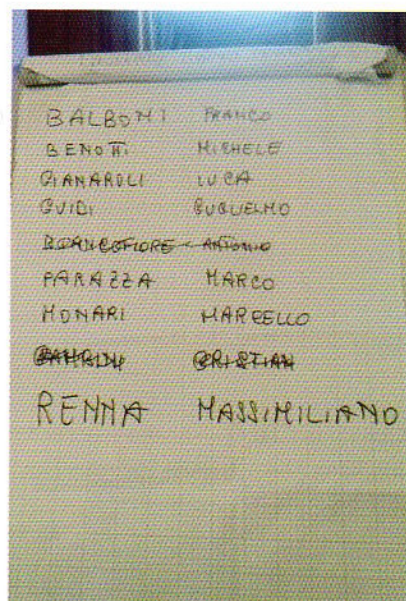 BALBONI FRANCO
BENOTTI MICHELE
GIANAROLI LUCA
GUIDI GUGLIELMO
BIANCOFIORE ANTONIO
PARAZZA MARCO
MONARI MARCELLO
CRISTIAN
RENNA MASSIMILIANO